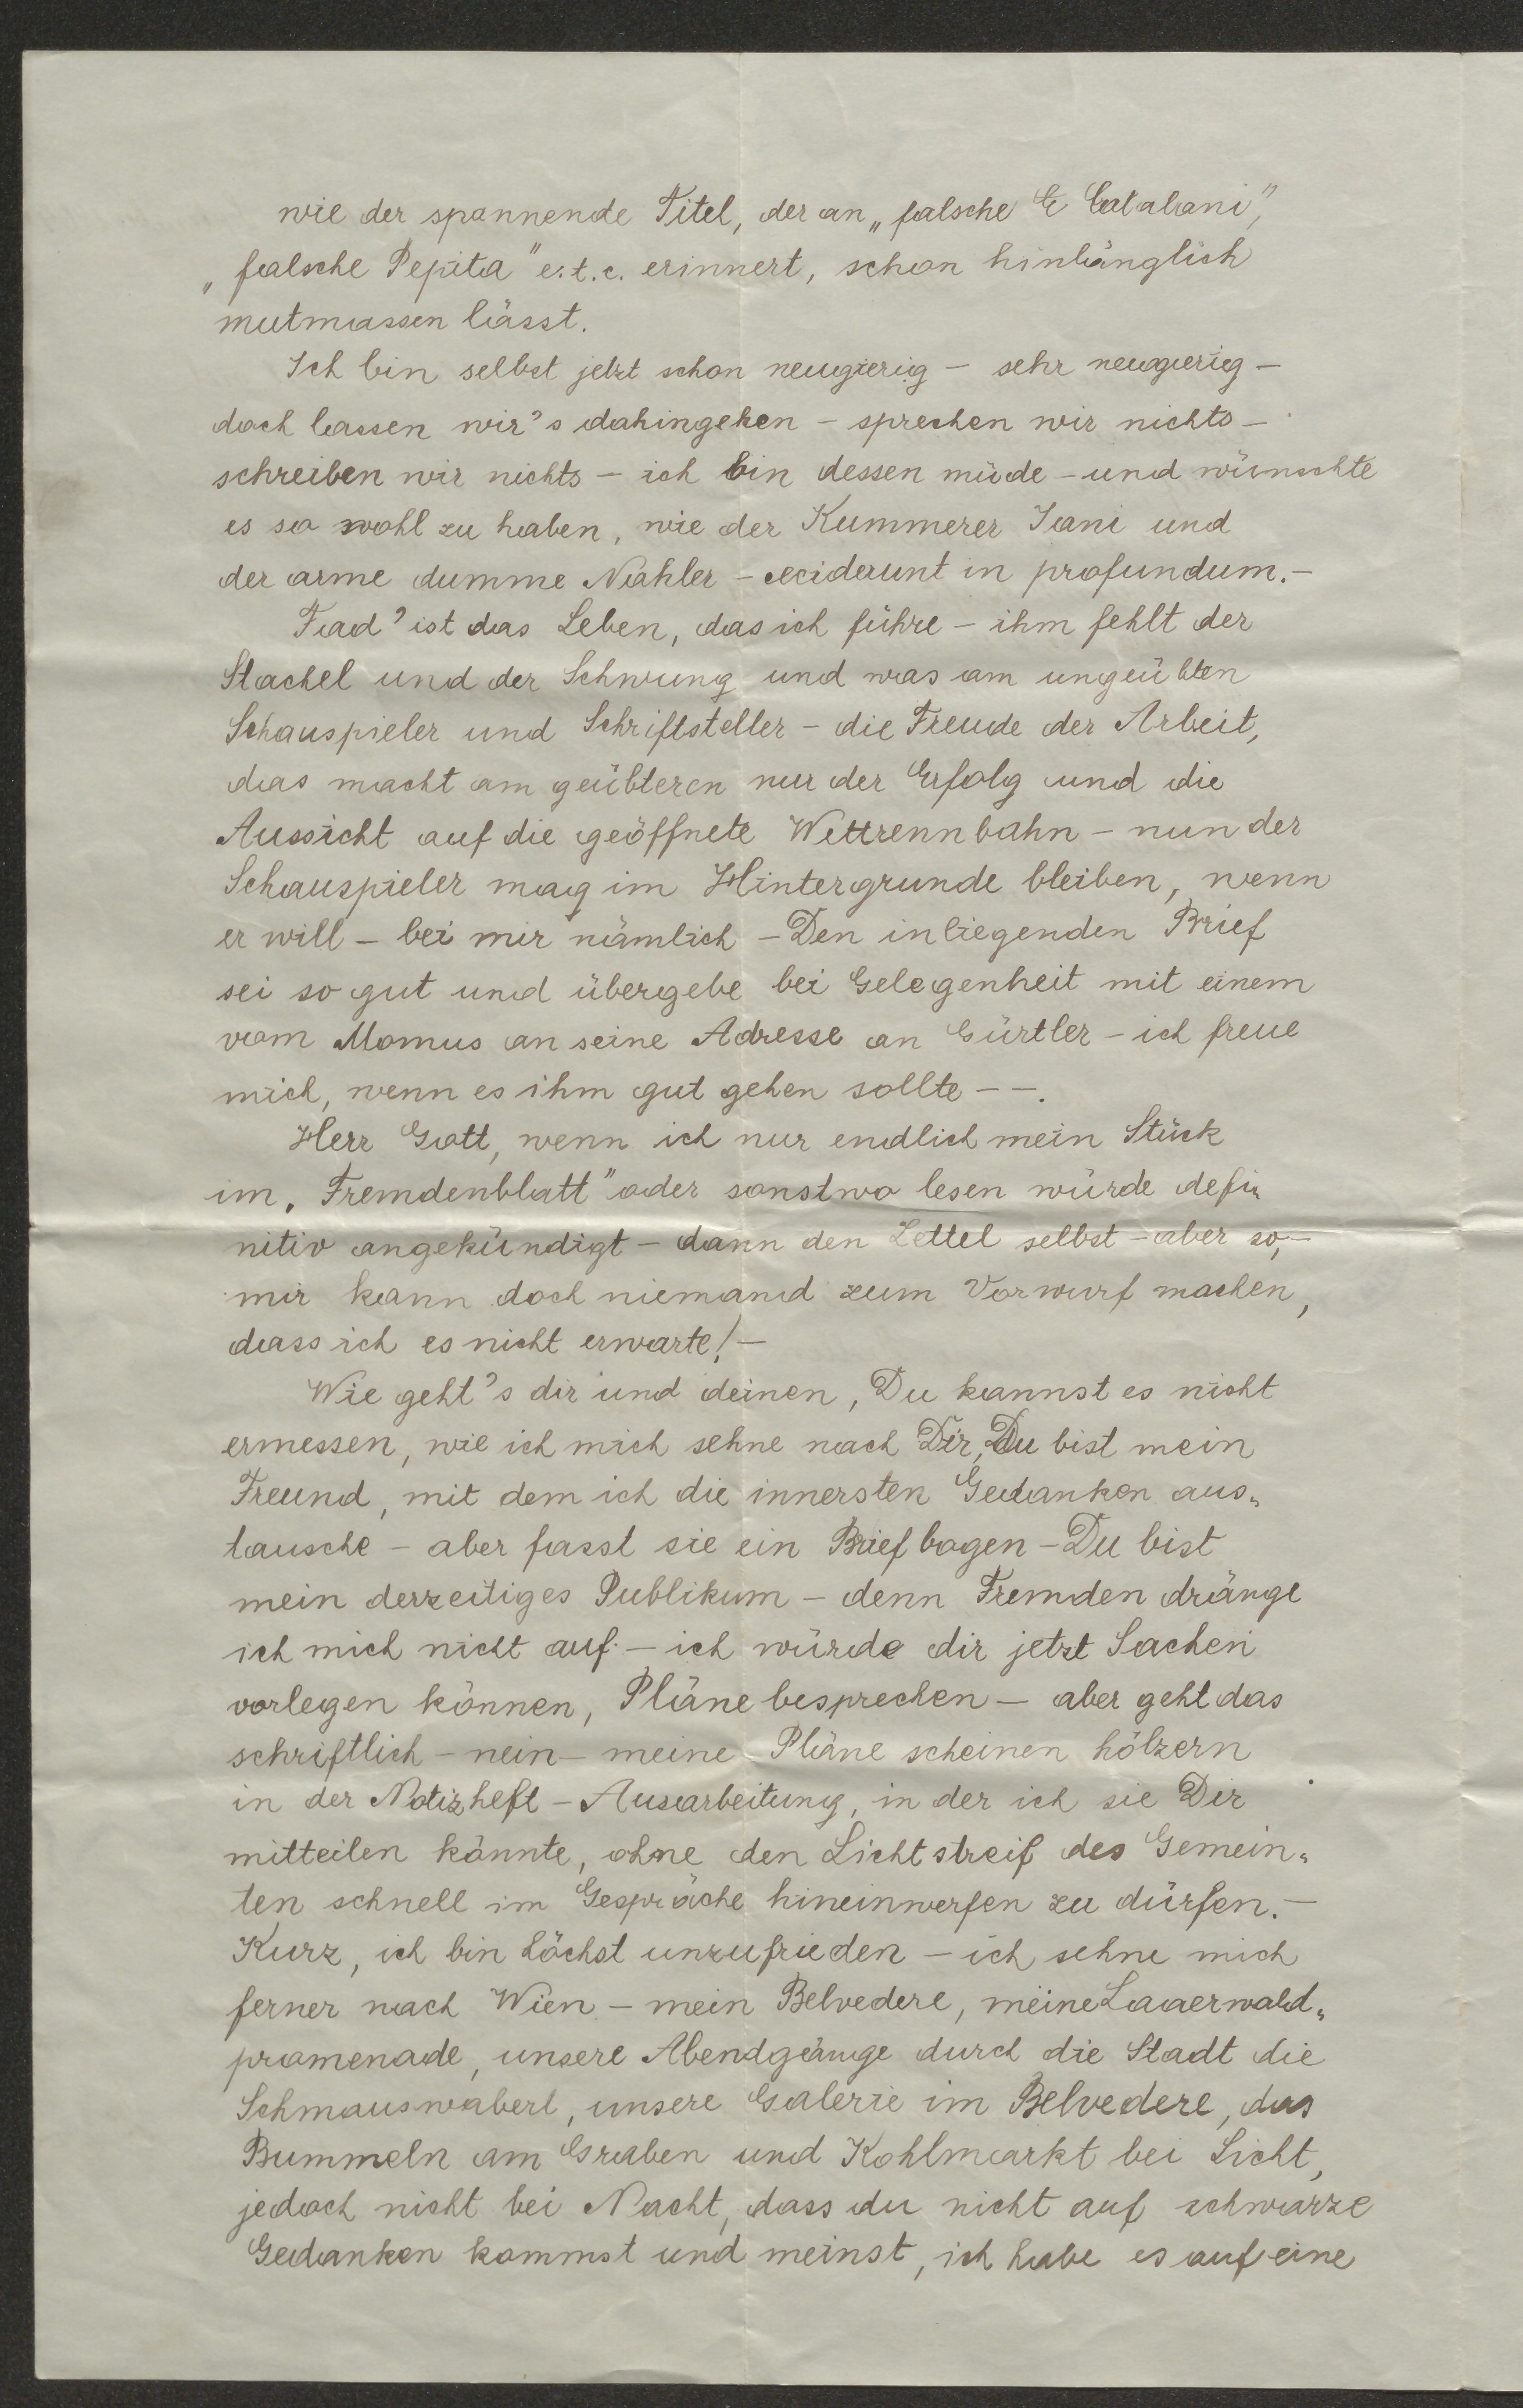 wie der spannende Titel, der an „falsche C Catalani",
„falsche Pepita" e.t.c. erinnert, schon hinlänglich
mutmassen lässt.
Ich bin selbst jetzt schon neugierig – sehr neugierig –
doch lassen wir's dahingehen – sprechen wir nichts –
schreiben wir nichts – ich bin dessen müde – und wünschte
es so wohl zu haben, wie der Kummerer Jani und
der arme dumme Nahler – ceciderunt in profundum. –
Fad' ist das Leben, das ich führe – ihm fehlt der
Stachel und der Schwung und was am ungeübten
Schauspieler und Schriftsteller – die Freude der Arbeit,
das macht am geübteren nur der Erfolg und die
Aussicht auf die geöffnete Wettrennbahn – nun der
Schauspieler mag im Hintergrunde bleiben, wenn
er will – bei mir nämlich – Den inliegenden Brief
sei so gut und übergebe bei Gelegenheit mit einem
vom Momus an seine Adresse an Gürtler – ich freue
mich, wenn es ihm gut gehen sollte – –.
Herr Gott, wenn ich nur endlich mein Stück
im „Fremdenblatt" oder sonstwo lesen würde defi„
nitiv angekündigt – dann den Zettel selbst – aber so, –
mir kann doch niemand zum Vorwurf machen,
dass ich es nicht erwarte! –
Wie geht's dir und deinen, Du kannst es nicht
ermessen, wie ich mich sehne nach Dir, Du bist mein
Freund, mit dem ich die innersten Gedanken aus„
tausche – aber fasst sie ein Briefbogen – Du bist
mein derzeitiges Publikum – denn Fremden dränge
ich mich nicht auf – ich würde dir jetzt Sachen
vorlegen können, Pläne besprechen – aber geht das
schriftlich – nein – meine Pläne scheinen hölzern
in der Notizheft – Ausarbeitung, in der ich sie Dir
mitteilen könnte, ohne den Lichtstreif des Gemein„
ten schnell im Gespräche hineinwerfen zu dürfen. –
Kurz, ich bin höchst unzufrieden – ich sehne mich
ferner nach Wien – mein Belvedere, meine Laaerwald„
promenade, unsere Abendgänge durch die Stadt die
Schmauswaberl, unsere Galerie im Belvedere, das
Bummeln am Graben und Kohlmarkt bei Licht,
jedoch nicht bei Nacht, dass du nicht auf schwarze
Gedanken kommst und meinst, ich habe es auf eine